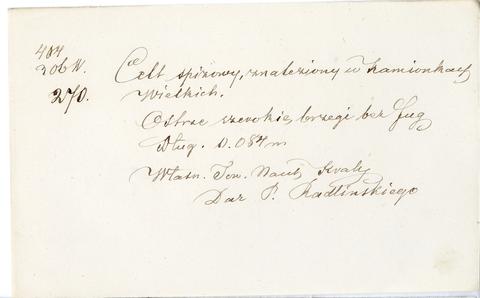 484
206 W.
270.
Celt spiżowy, znaleziony w Kamionkach
Wielkich.
Ostrze szerokie, brzegi bez fug
Dług. 0.084 m
Własn. Tow. Nauk. Krak.
Dar P. Radlińskiego